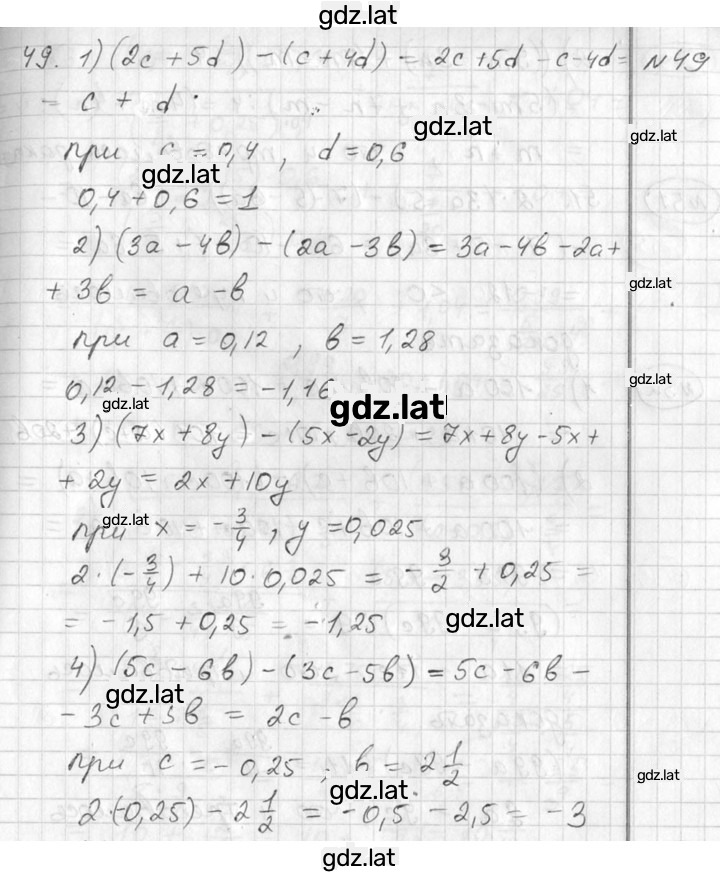 gdz.lat
49. 1) (2c + 5d) - (c + 4d) = 2c + 5d - c - 4d = N49
= c + d
gdz.lat
gdz.lat
при c = 0,4 , d = 0,6
gdz.lat
0,4 + 0,6 = 1
2) (3a - 4b) - (2a - 3b) = 3a - 4b - 2a +
+ 3b = a - b
gdz.lat
при a = 0,12 , b = 1,28
0,12 - 1,28 = -1,16
gdz.lat
gdz.lat
gdz.lat
3) (7x + 8y) - (5x - 2y) = 7x + 8y - 5x +
+ 2y = 2x + 10y
gdz.lat
gdz.lat
при x = -3/4 , y = 0,025
2·(-3/4) + 10·0,025 = -3/2 + 0,25 =
= -1,5 + 0,25 = -1,25
gdz.lat
4) (5c - 6b) - (3c - 5b) = 5c - 6b -
gdz.lat
- 3c + 5b = 2c - b
при c = -0,25 ; b = 2 1/2
gdz.lat
gdz.lat
2·(-0,25) - 2 1/2 = -0,5 - 2,5 = -3
gdz.lat